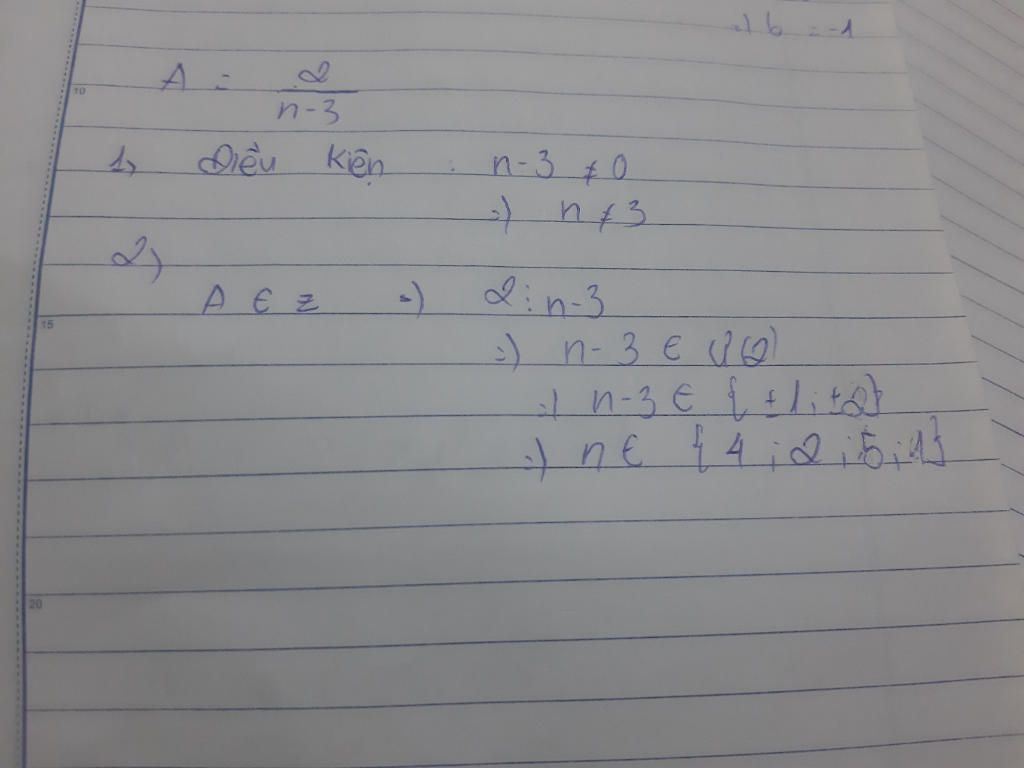 =) b = -1
10
A = 2/(n-3)
1, Điều kiện : n-3 ≠ 0
=) n ≠ 3
2)
A ∈ z =) 2 ⋮ n-3
15
=) n - 3 ∈ Ư(2)
=) n-3 ∈ { ±1 ; ±2}
=) n ∈ { 4 ; 2 ; 5 ; 1}
20